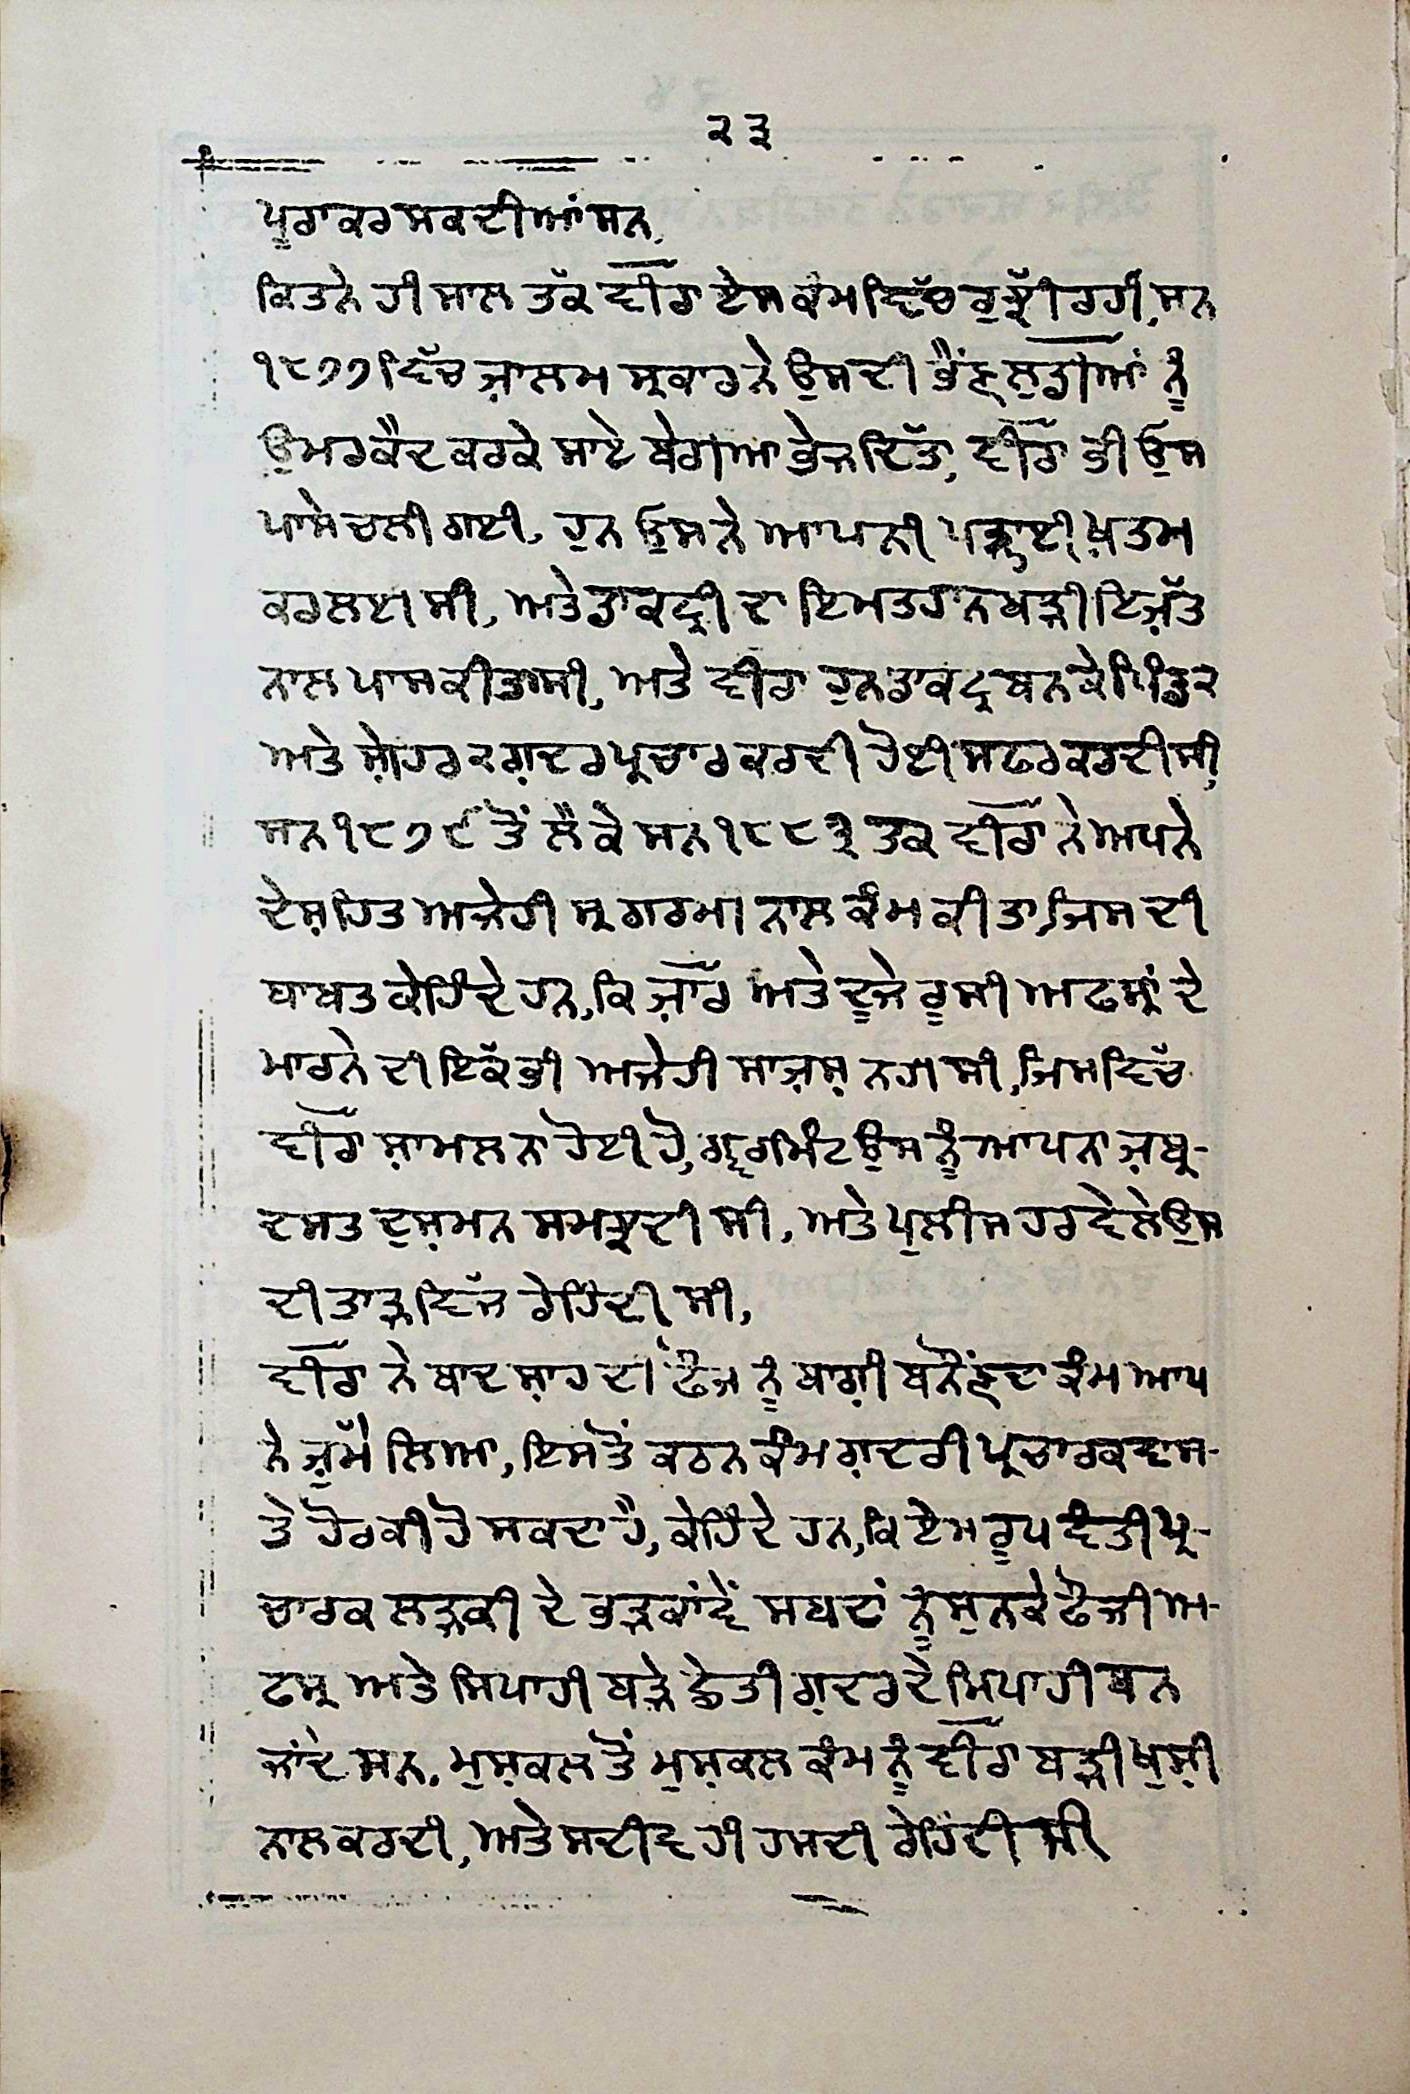 ੨੩
ਪੂਰਾ ਕਰ ਸਕਦੀਆਂ ਸਨ,
ਕਿਤਨੇ ਹੀ ਸਾਲ ਤੱਕ ਵੀਰਾ ਏਸ ਕੰਮ ਵਿੱਚ ਰੁਝੀ ਰਹੀ, ਸਨ
੧੮੭੭ ਵਿੱਚ ਜ਼ਾਲਮ ਸ੍ਰਕਾਰ ਨੇ ਉਸਦੀ ਭੈਂਣ ਲੁਡੀਆਂ ਨੂੰ
ਉਮਰ ਕੈਦ ਕਰਕੇ ਸਾਏਬੇਰੀਆ ਭੇਜ ਦਿੱਤਾ, ਵੀਰਾ ਭੀ ਉਸ
ਪਾਸੇ ਚਲੀ ਗਈ, ਹੁਨ ਉਸਨੇ ਆਪਨੀ ਪੜ੍ਹਾਈ ਖ਼ਤਮ
ਕਰ ਲਈ ਸੀ, ਅਤੇ ਡਾਕਟ੍ਰੀ ਦਾ ਇਮਤਹਾਨ ਬੜੀ ਇਜ਼ੱਤ
ਨਾਲ ਪਾਸ ਕੀਤਾ ਸੀ, ਅਤੇ ਵੀਰਾ ਹੁਨ ਡਾਕਟ੍ਰ ਬਨਕੇ ਪਿੰਡ੨
ਅਤੇ ਸ਼ੇਹਰ੨ ਗ਼ਦਰ ਪ੍ਰਚਾਰ ਕਰਦੀ ਹੋਈ ਸਫਰ ਕਰਦੀ ਸੀ,
ਸਨ ੧੮੭੯ ਤੋਂ ਲੈਕੇ ਸਨ ੧੮੮੩ ਤਕ ਵੀਰਾ ਨੇ ਅਪਨੇ
ਦੇਸ਼ ਹਿਤ ਅਜੇਹੀ ਸ੍ਰਗਰਮੀ ਨਾਲ ਕੰਮ ਕੀਤਾ, ਜਿਸਦੀ
ਬਾਬਤ ਕੇਹਿੰਦੇ ਹਨ, ਕਿ ਜ਼ਾਰ ਅਤੇ ਦੂਜੇ ਰੂਸੀ ਅਫਸ੍ਰਾਂ ਦੇ
ਮਾਰਨੇ ਦੀ ਇਕੱ ਭੀ ਅਜੇਹੀ ਸਾਜ਼ਸ਼ ਨਹੀ ਸੀ, ਜਿਸ ਵਿੱਚ
ਵੀਰਾ ਸ਼ਾਮਲ ਨਾ ਹੋਈ ਹੋ, ਗਵਰਮਿੰਟ ਉਸਨੂੰ ਆਪਨਾ ਜ਼ਬ੍ਰ-
ਦਸਤ ਦੁਸ਼ਮਨ ਸਮਝ੍ਰਦੀ ਸੀ, ਅਤੇ ਪੁਲੀਸ ਹਰ ਵੇਲੇ ਉਸ
ਦੀ ਤਾੜ ਵਿੱਚ ਰੇਹਿੰਦੀ ਸੀ,
ਵੀਰਾ ਨੇ ਬਾਦਸ਼ਾਹ ਦੀ ਫੌਜ ਨੂੰ ਬਾਗ਼ੀ ਬਨੌਂਣ ਦਾ ਕੰਮ ਆਪ
ਨੇ ਜ਼ੁਮੇਂ ਲਿਆ, ਇਸਤੋਂ ਕਠਨ ਕੰਮ ਗ਼ਦਰੀ ਪ੍ਰਚਾਰਕ ਵਾਸ-
ਤੇ ਹੋਰ ਕੀ ਹੋ ਸਕਦਾ ਹੈ, ਕੇਹਿੰਦੇ ਹਨ, ਕਿ ਏਸ ਰੂਪ ਵੰਤੀ ਪ੍ਰ-
ਚਾਰਕ ਲੜਕੀ ਦੇ ਭੜਕਾਂਵੇਂ ਸਬਦਾਂ ਨੂੰ ਸੁਨਕੇ ਫੌਜੀ ਅ-
ਫਸ੍ਰ ਅਤੇ ਸਿਪਾਹੀ ਬੜੇ ਛੇਤੀ ਗ਼ਦਰ ਦੇ ਸਿਪਾਹੀ ਬਨ
ਜਾਂਦੇ ਸਨ, ਮੁਸ਼ਕਲ ਤੋਂ ਮੁਸ਼ਕਲ ਕੰਮ ਨੂੰ ਵੀਰਾ ਬੜੀ ਖੁਸ਼ੀ
ਨਾਲ ਕਰਦੀ, ਅਤੇ ਸਦੀਵ ਹੀ ਹਸਦੀ ਰੇਹਿੰਦੀ ਸੀ